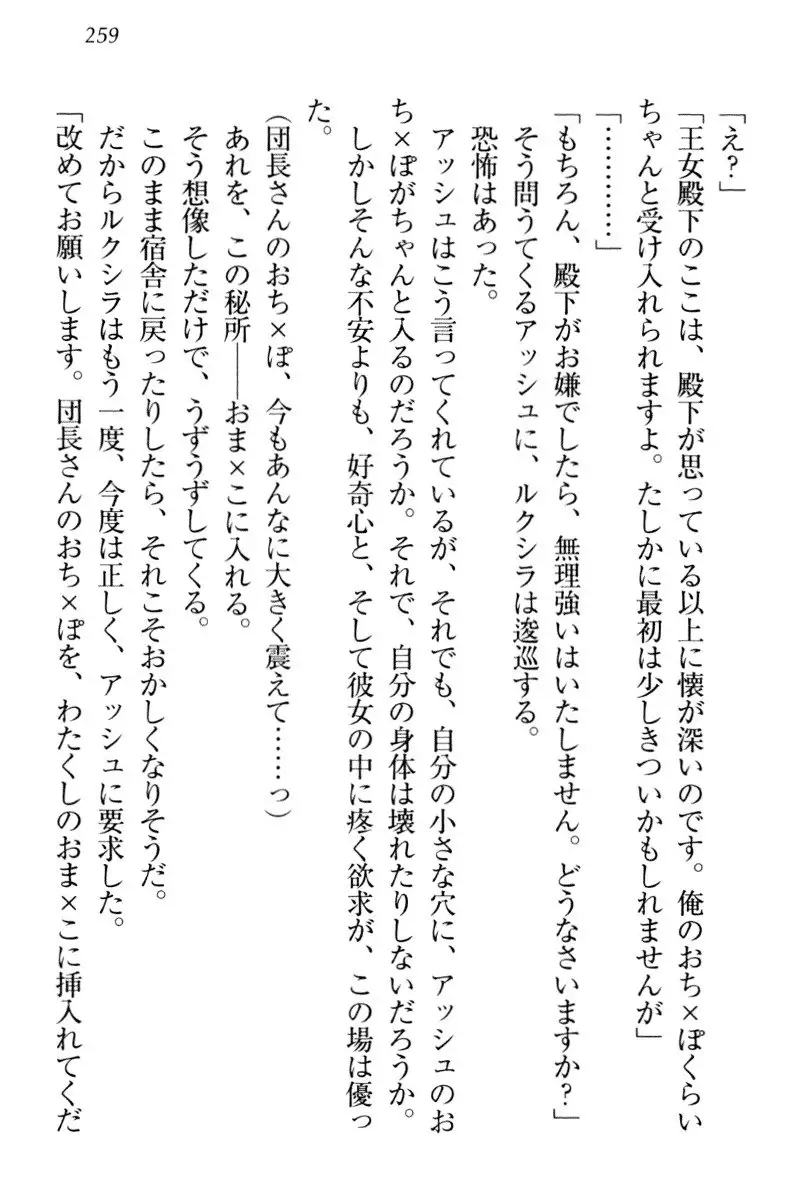 259
「え？」
「王女殿下のここは、殿下が思っている以上に懐が深いのです。俺のおち×ぽくらい
ちゃんと受け入れられますよ。たしかに最初は少しきついかもしれませんが」
「…………」
「もちろん、殿下がお嫌でしたら、無理強いはいたしません。どうなさいますか？」
そう問うてくるアッシュに、ルクシラは逡巡する。
恐怖はあった。
アッシュはこう言ってくれているが、それでも、自分の小さな穴に、アッシュのお
ち×ぽがちゃんと入るのだろうか。それで、自分の身体は壊れたりしないだろうか。
しかしそんな不安よりも、好奇心と、そして彼女の中に疼く欲求が、この場は優っ
た。
（団長さんのおち×ぽ、今もあんなに大きく震えて……っ）
あれを、この秘所――おま×こに入れる。
そう想像しただけで、うずうずしてくる。
このまま宿舎に戻ったりしたら、それこそおかしくなりそうだ。
だからルクシラはもう一度、今度は正しく、アッシュに要求した。
「改めてお願いします。団長さんのおち×ぽを、わたくしのおま×こに挿入れてくだ